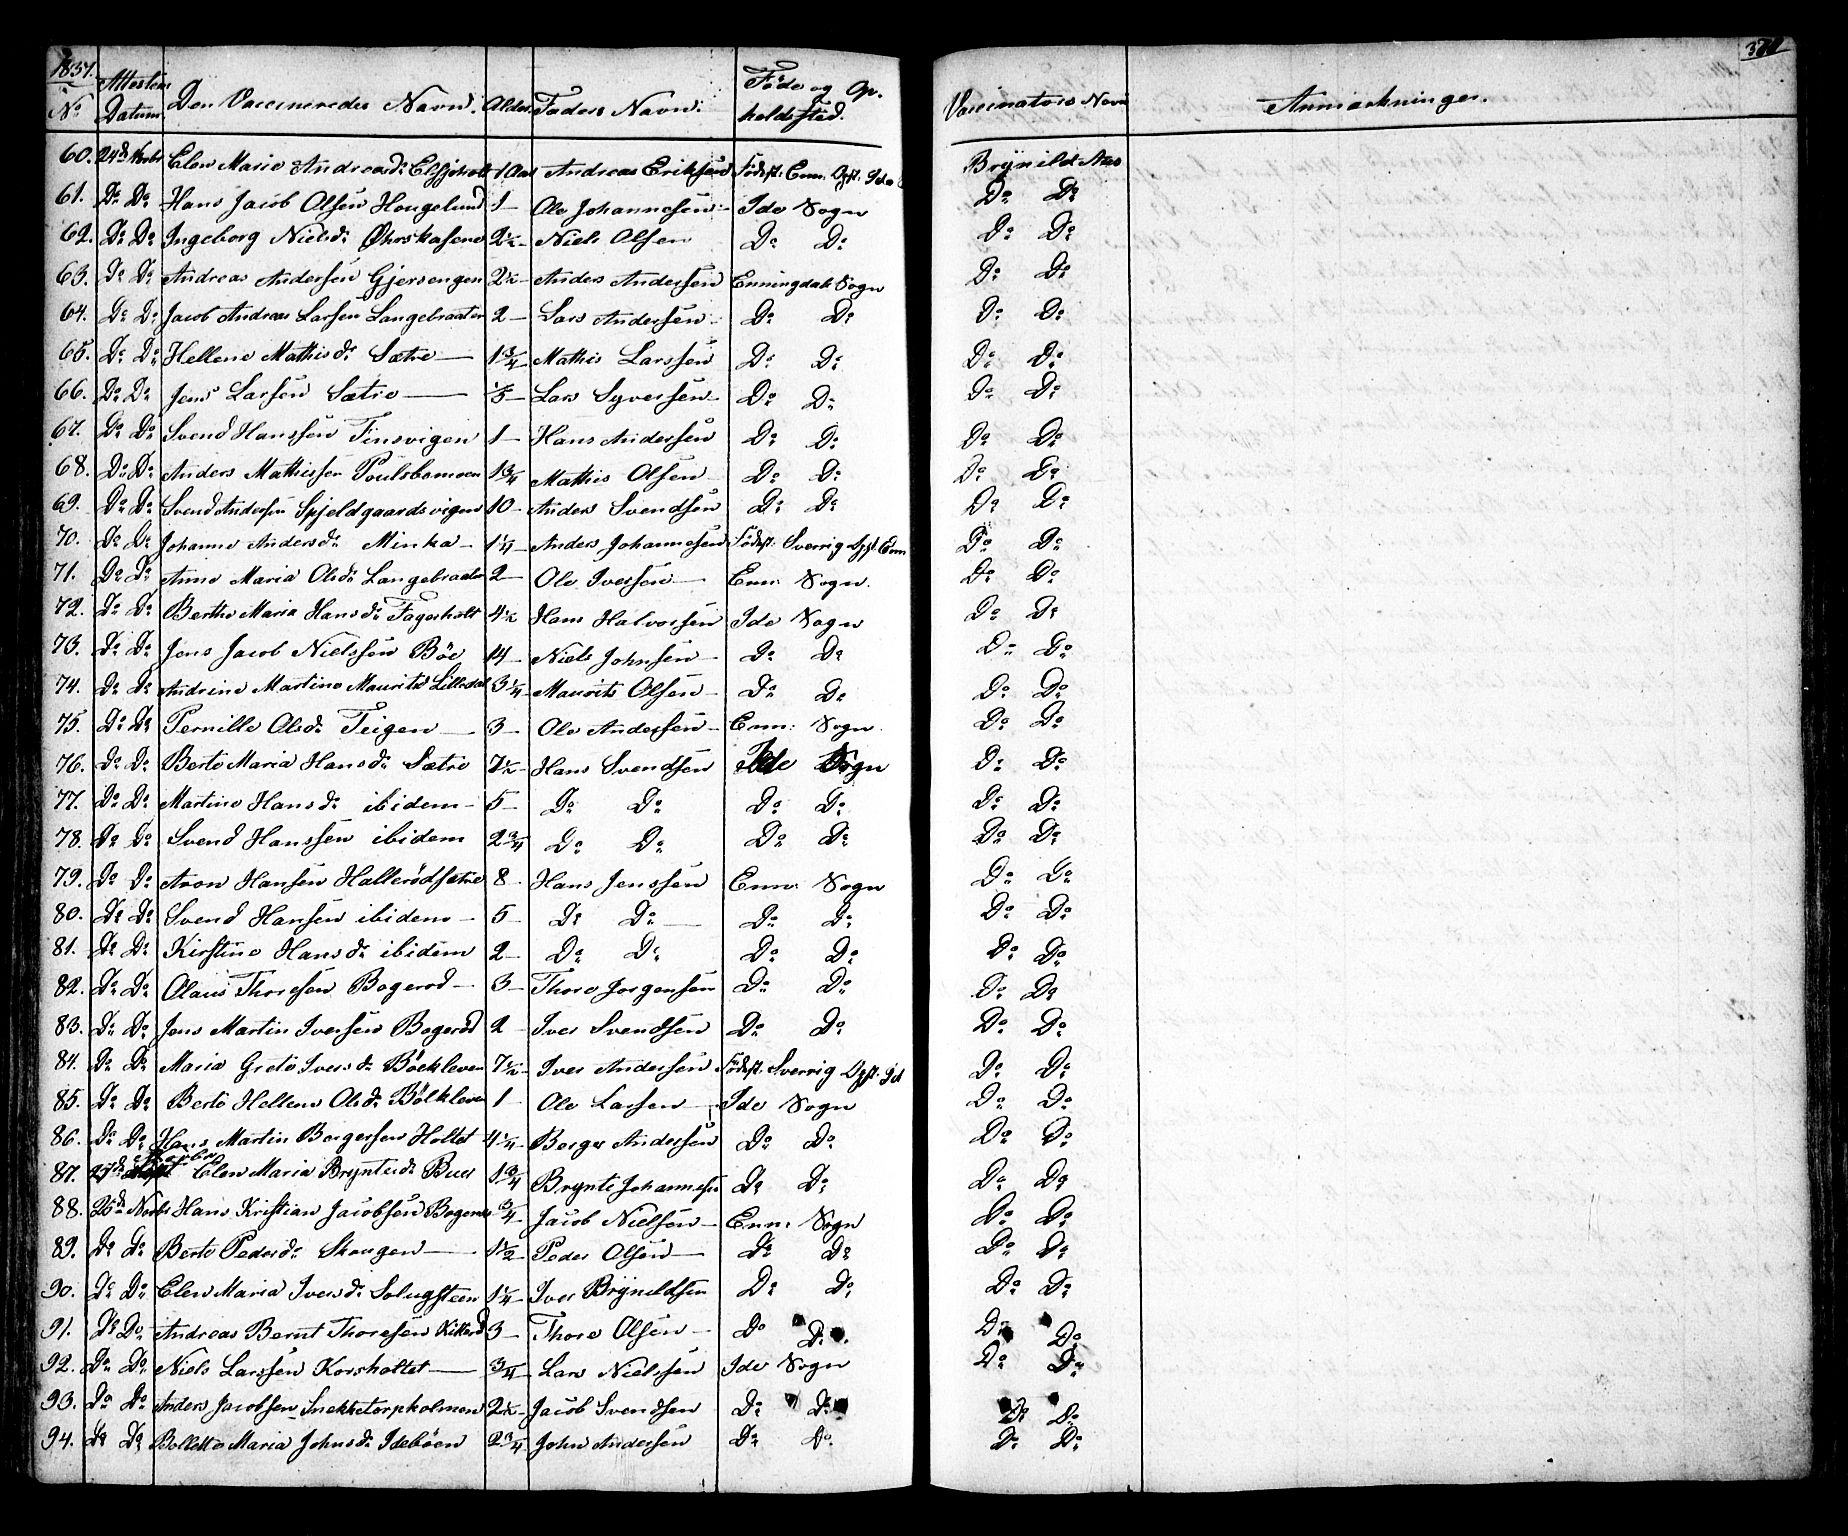 1837.
No Attestens Datum. Den Vaccineredes Navn. Alder. Faders Navn. Føde og Opholdssted. Vaccinators Navn Anmærkninger.
60. 24d Novbr Elen Marie Andreasd: Elgsjøholt 1 Aar Andreas Eriksen Fødest: Enn. Opst: Ide Brynild Aas
61. Do Do Hans Jacob Olsen Hougelund 1 – Ole Johannesen – Ide Sogn Do Do
62. Do Do Ingeborg Nielsd: 2½ – Niels Olsen Do Do Do Do
63. Do Do Andreas Andersen Gjersengen 2½ – Anders Andersen Enningdals Sogn Do Do
64. Do Do Jacob Andreas Larsen Langebraaten 2 – Lars Andersen – Do Do Do Do
65. Do Do Hellene Mathisd: Sætre — 1¾ – Mathis Larssen Do Do Do Do
66. Do Do Jens Larsen Sætre — Lars Syversen – Do Do Do Do
67. Do Do Svend Hanssen Finsvigen 1 – Hans Andersen Do Do Do Do
68. Do Do Anders Mathissen Poulsbomoen 1¾ Mathis Olsen – Do Do Do Do
69. Do Do Svend Andersen Spjeldgaardsvigen 10 – Anders Svendsen Do Do Do Do
70. Do Do Johanne Andersd: Minka – 1¼ – Anders Johannesen Fødest: Sverrig Opst: Enn Do Do
71. Do Do Anne Maria Olsd: Langebraaten 2 – Ole Iversen — Enn: Sogn. Do Do
72. Do Do Berthe Maria Hansd: Fagerholt 4½ Hans Halvorsen Ide Sogn Do Do
73. Do Do Jens Jacob Nielssen Böe 14 – Niels Johnsen – Do Do Do Do
74. Do Do Andrine Martine Mauritsd Lilledal 3¼ – Maurits Olsen – Do Do Do Do
75. Do Do Pernille Olsd: Teigen — 3 – Ole Andersen – Enn: Sogn. Do Do
76. Do Do Berte Maria Hansd: Sætre 7½ – Hans Svendsen Ide Sogn Do Do
77. Do Do Martine Hansd: ibidem – 5 – Do Do Do Do Do Do
78. Do Do Svend Hanssen ibidem 2¾ Do Do Do Do Do Do
79. Do Do Aron Hansen Hallerödsætre 8 – Hans Jenssen Enn: Sogn Do Do
80. Do Do Svend Hansen ibidem – 5 – Do Do — Do Do Do Do
81. Do Do Kirstine Hansd: ibidem 2 – Do Do Do Do Do Do
82. Do Do Olaus Thoresen Bogerod – 3 – Thore Jorgensen Do Do Do Do
83. Do Do Jens Martin Iversen Bogeröd 2 – Iver Svendsen Do Do Do Do
84. Do Do Maria Grete Iversd: Böekleven 7½ – Iver Andersen Fødest: Sverrig Opst: Id Do Do
85. Do Do Berte Hellene Olsd: Bölkleven 1 – Ole Larsen — Ide Sogn Do Do
86. Do Do Hans Martin Borgersen Holtet 4¼ – Borger Andersen Do Do Do Do
87. Novbr Elen Maria Bryntesd: Buer 1¾ Brynte Johannesen Do Do Do Do
88. 26d Novbr Hans Kristian Jacobsen Bogerød ¾ Jacob Nielsen – Enn: Sogn Do Do
89. Do Do Berte Pedersd: Skougen — 1½ – Peder Olsen — Do Do Do Do
90. Do Do Elen Maria Iversd: Solugsteen 1¼ – Iver Brynildsen Do Do Do Do
91. Do Do Andreas Bernt Thoresen Kikerød 3 – Thore Olsen – Do Do Do Do
92. Do Do Niels Larssen Korsholtet — ¾ – Lars Nielssen Ide Sogn Do Do
93. Do Do Anders Jacobsen Snekketorpholmen 2½ – Jacob Svendsen Do Do Do Do
94. Do Do Bollette Maria Johnsd: Idebøen 2¾ John Andersen Do Do Do Do